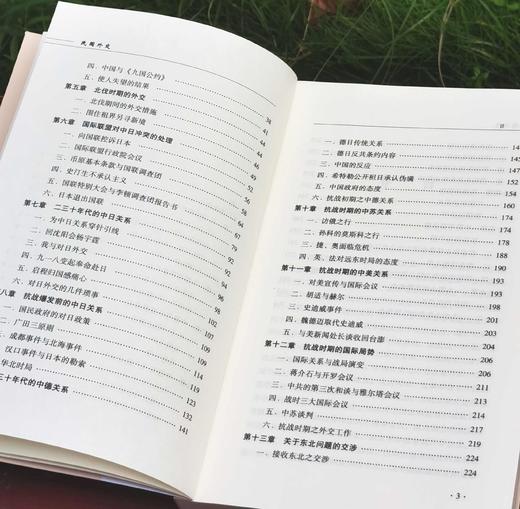 民国外交
四、中国与《九国公约》
五、使人失望的结果 38
第五章 北伐时期的外交 41
一、北伐期间的外交措施 44
二、困住租界另寻新境 47
第六章 国际联盟对中日冲突的处理 56
一、向国联控诉日本 56
二、国际联盟行政院会议 58
三、币原基本条款与国联调查团 62
四、史汀生不承认主义 64
五、国联特别大会与李顿调查团报告书 67
六、日本退出国联 77
第七章 二三十年代的中日关系 92
一、为中日关系穿针引线 92
二、回沈阳会杨宇霆
三、我与对日外交
四、九一八变起奉命赴日
五、启程归国感痛心
六、对日外交的几件琐事
八章 抗战爆发前的中日关系 102
一、国民政府的对日政策
二、广田三原则 109
、成都事件与北海事件 109
汉口事件与日本的勒索 119
华北时局 123
三十年代的中德关系 132
141
目
一、德日传统关系
二、德日反共条约的内容
三、中国的反应
四、希特勒公开袒日承认伪满
五、中国政府的态度
六、抗战初期之中德关系
第十章 抗战时期的中苏关系
一、访俄之行
二、孙科的莫斯科之行
三、捷、奥面临危机
四、英、法对远东时局的态度
第十一章 抗战时期的中美关系 193
一、对美宣传与国际会议 193
二、胡适与赫尔 194
三、史迪威事件 198
四、魏德迈取代史迪威 201
五、与美新闻处长谈收回台澎 204
第十二章 抗战时期的国际局势 206
一、国际关系与战局演变 206
二、蒋介石与开罗会议 213
三、中共的第三次和谈与雅尔塔会议 214
四、战时三大国际会议
五、中苏谈判 217
六、抗战时期之外交工作 219
第十三章 关于东北问题的交涉 224
一、接收东北之交涉 224
·3·